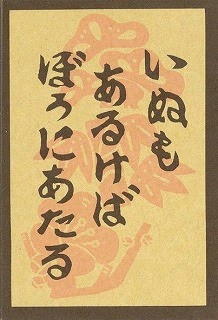 いぬも
あるけば
ぼうにあたる